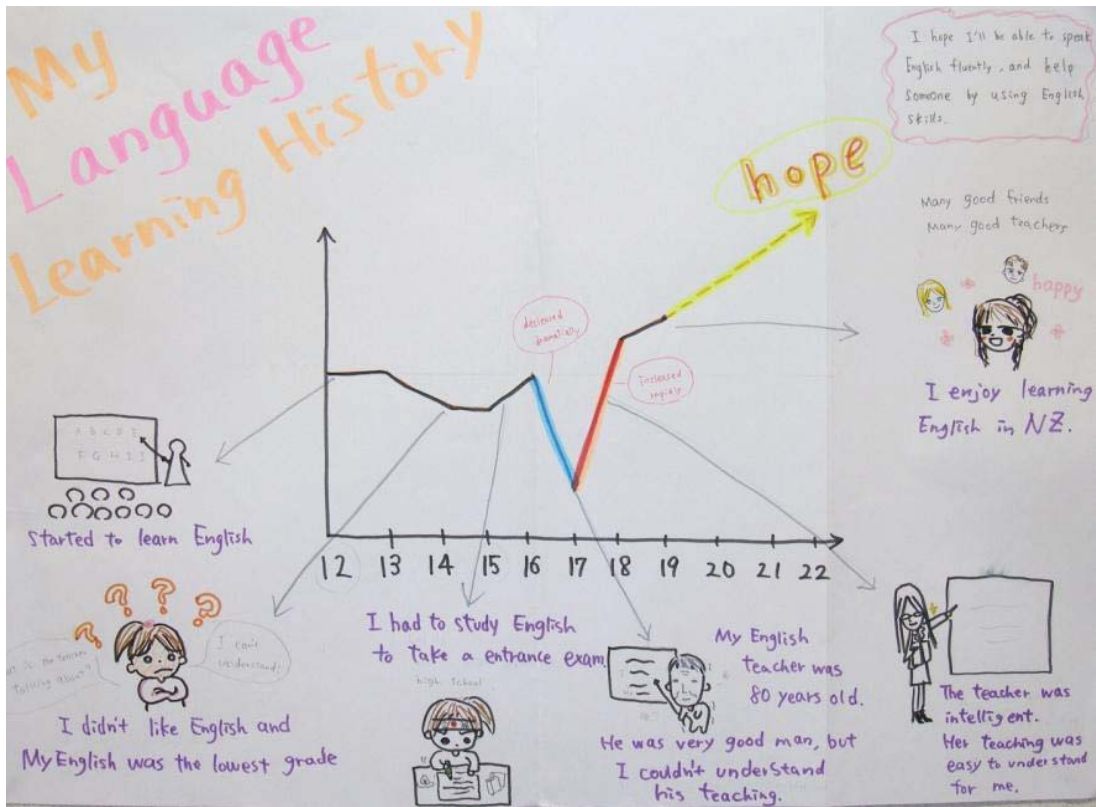 My
Language
Learning History
I hope I'll be able to speak
English fluently, and help
someone by using English
skills.
hope
Many good friends
Many good teachers
happy
I enjoy learning
English in NZ.
decreased
dramatically
increased
rapidly
A B C D E
F G H I J
Started to learn English
12 13 14 15 16 17 18 19 20 21 22
the teacher
talking about?
I can't
understand!
I didn't like English and
My English was the lowest grade
I had to study English
to take a entrance exam.
high school
My English
teacher was
80 years old.
He was very good man, but
I couldn't understand
his teaching.
The teacher was
intelligent.
Her teaching was
easy to understand
for me.